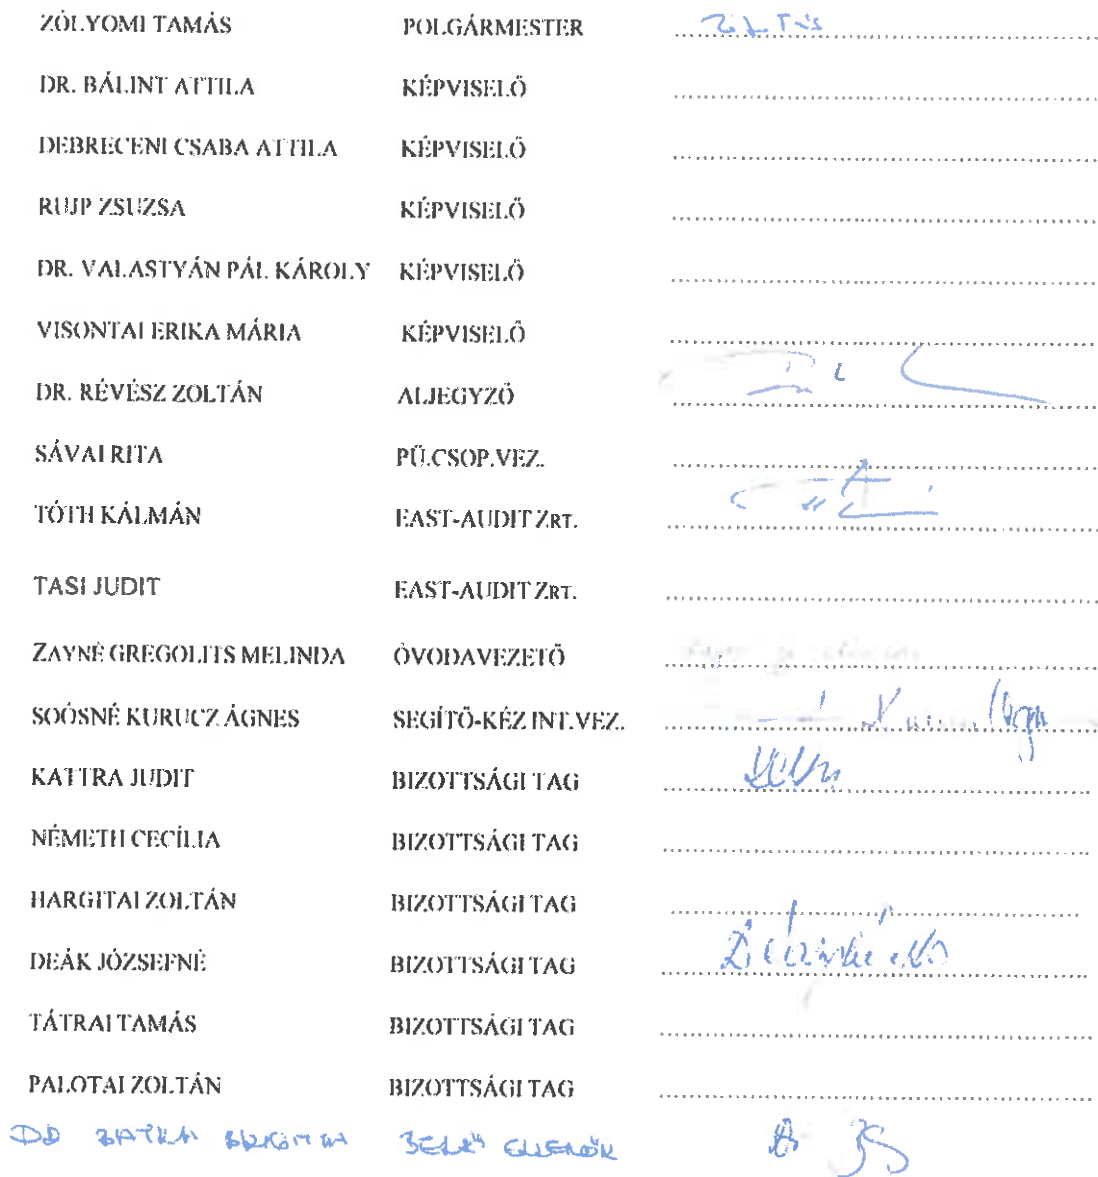 ZÓLYOMI TAMÁS POLGÁRMESTER
DR. BÁLINT ATTILA KÉPVISELŐ
DEBRECENI CSABA ATTILA KÉPVISELŐ
RUJP ZSUZSA KÉPVISELŐ
DR. VALASTYÁN PÁL KÁROLY KÉPVISELŐ
VISONTAI ERIKA MÁRIA KÉPVISELŐ
DR. RÉVÉSZ ZOLTÁN ALJEGYZŐ
SÁVAI RITA PÜ.CSOP.VEZ.
TÓTH KÁLMÁN EAST-AUDIT ZRT.
TASI JUDIT EAST-AUDIT ZRT.
ZAYNÉ GREGOLITS MELINDA ÓVODAVEZETŐ
SOÓSNÉ KURUCZ ÁGNES SEGÍTŐ-KÉZ INT.VEZ.
KATTRA JUDIT BIZOTTSÁGI TAG
NÉMETH CECÍLIA BIZOTTSÁGI TAG
HARGITAI ZOLTÁN BIZOTTSÁGI TAG
DEÁK JÓZSEFNÉ BIZOTTSÁGI TAG
TÁTRAI TAMÁS BIZOTTSÁGI TAG
PALOTAI ZOLTÁN BIZOTTSÁGI TAG
BELSŐ ELLENŐR